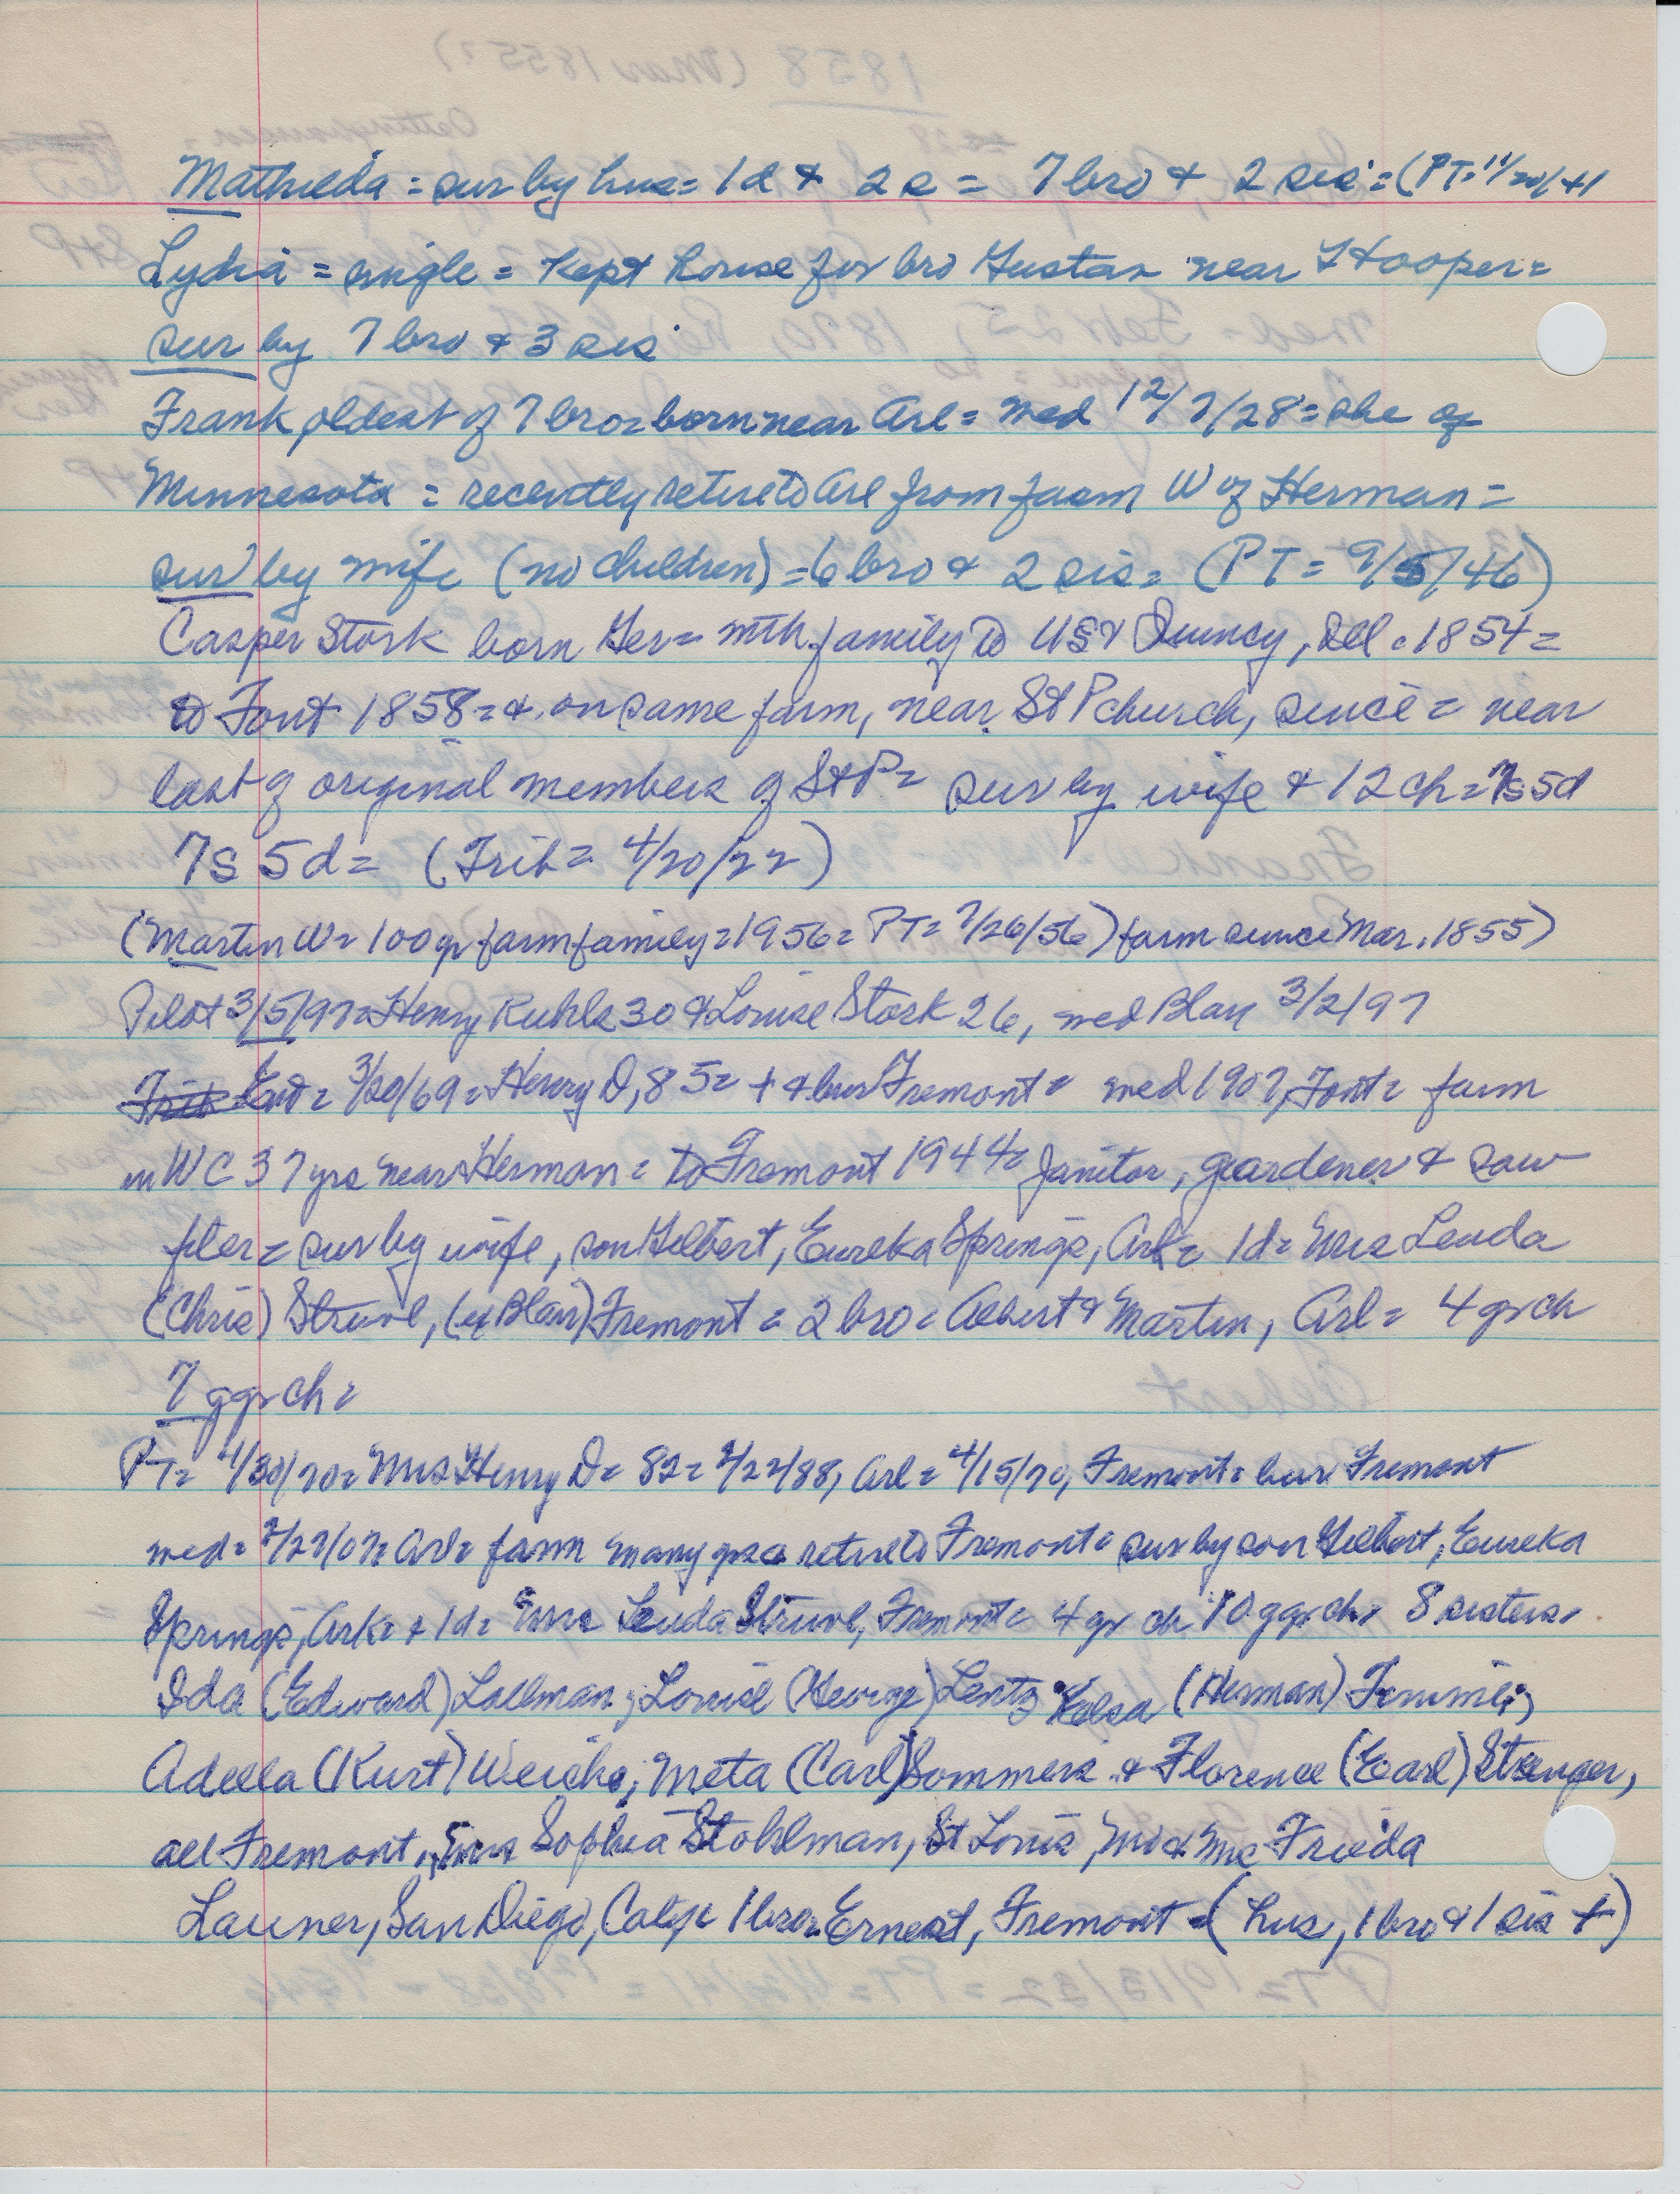 Mathilda = sur by hus = 1d & 2s = 7 bro & 2 sis = (PT = 11/20/41
Lydia = single = kept house for bro Gustav near Hooper =
sur by 7 bro & 3 sis
Frank oldest of 7 bro = born near Arl = med 12/7/28 = she of
Minnesota = recently retire to Arl from farm W of Herman =
sur by wife (no children) = 6 bro & 2 sis = (PT = 9/5/46)
Casper Stork born Ger = with family to US & Quincy, Ill. 1854 =
to Font 1858 = & on same farm, near St P church, since = near
last of original members of St P = sur by wife & 12 ch = 7s 5d
7s 5d = (Trib = 4/20/22)
(Martin W = 100 yr farm family = 1956 = PT = 7/26/56) farm since Mar. 1855)
Pilot 3/5/97 = Henry Kuhls 30 & Louise Stork 26, med Blair 3/2/97
Trib Ent = 3/20/69 = Henry D, 85 = + & bur Fremont = med 1907, Font = farm
in WC 37 yrs near Herman = to Fremont 1944 = janitor, geardener & saw
filer = sur by wife, son Gilbert, Eureka Springs, Ark = 1d = Mrs Leuda
(Chris) Struve, (of Blair) Fremont = 2 bro = Albert & Martin, Arl = 4 gr ch
7 ggr ch =
PT = 4/30/70 = Mrs Henry D = 82 = 2/22/88, Arl = 4/15/70, Fremont = bur Fremont
med = 2/27/07 = Arl = farm many yrs = retire to Fremont = sur by son Gilbert, Eureka
Springs, Ark = & 1d = Mrs Leuda Struve, Fremont = 4 gr ch 10 ggr ch = 8 sisters =
Ida (Edward) Lallman; Louise (George) Lentz; Elsa (Herman) Temme;
Adella (Kurt) Weichs; Meta (Carl) Sommers & Florence (Earl) Stenger,
all Fremont, Mrs Sophia Stohlman, St Louis, Mo & Mrs Frieda
Launer, San Diego, Calif = 1 bro = Ernest, Fremont = (hus, 1 bro & 1 sis +)